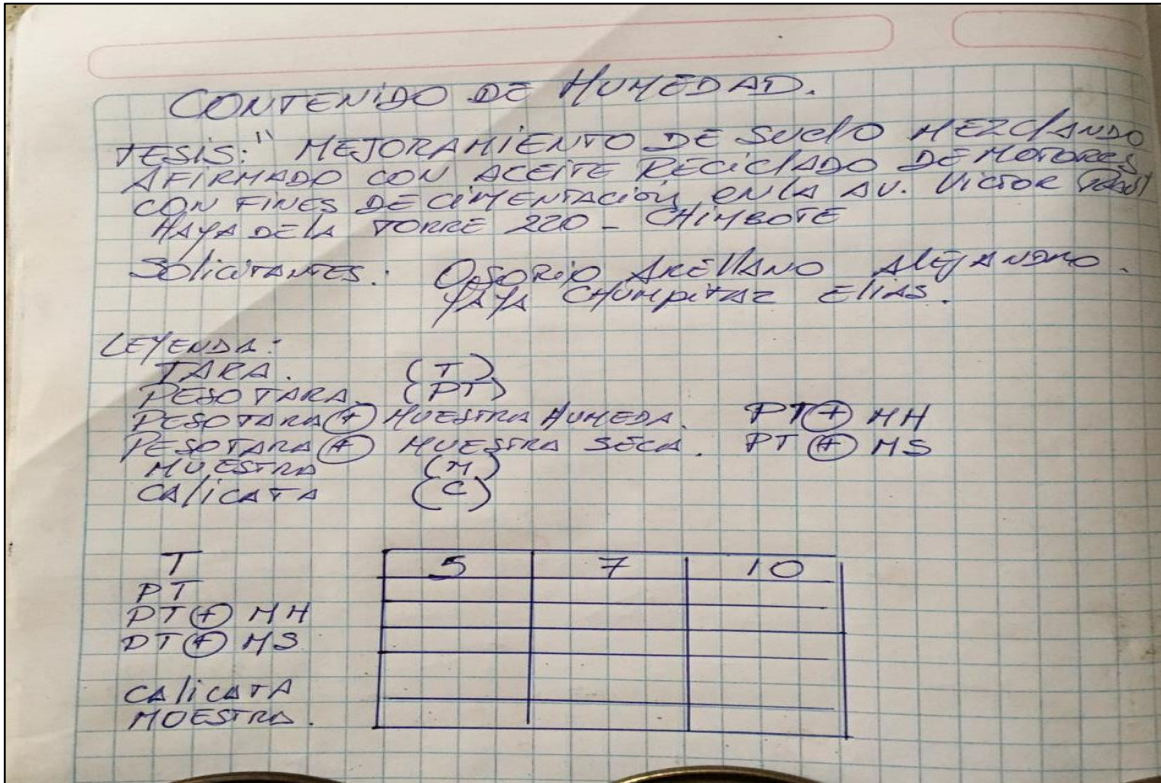 CONTENIDO DE HUMEDAD.
TESIS: " MEJORAMIENTO DE SUELO MEZCLANDO
AFIRMADO CON ACEITE RECICLADO DE MOTORES
CON FINES DE CIMENTACIÓN EN LA AV. VICTOR RAUL
HAYA DE LA TORRE 220 - CHIMBOTE
SOLICITANTES: OSORIO ARELLANO ALEJANDRO.
YAYA CHUMPITAZ ELIAS.
LEYENDA:
TARA. (T)
PESO TARA. (PT)
PESO TARA (+) MUESTRA HUMEDA. PT (+) MH
PESO TARA (+) MUESTRA SECA. PT (+) MS
MUESTRA (M)
CALICATA (C)
T 5 7 10
PT
PT (+) MH
PT (+) MS
CALICATA
MUESTRA.